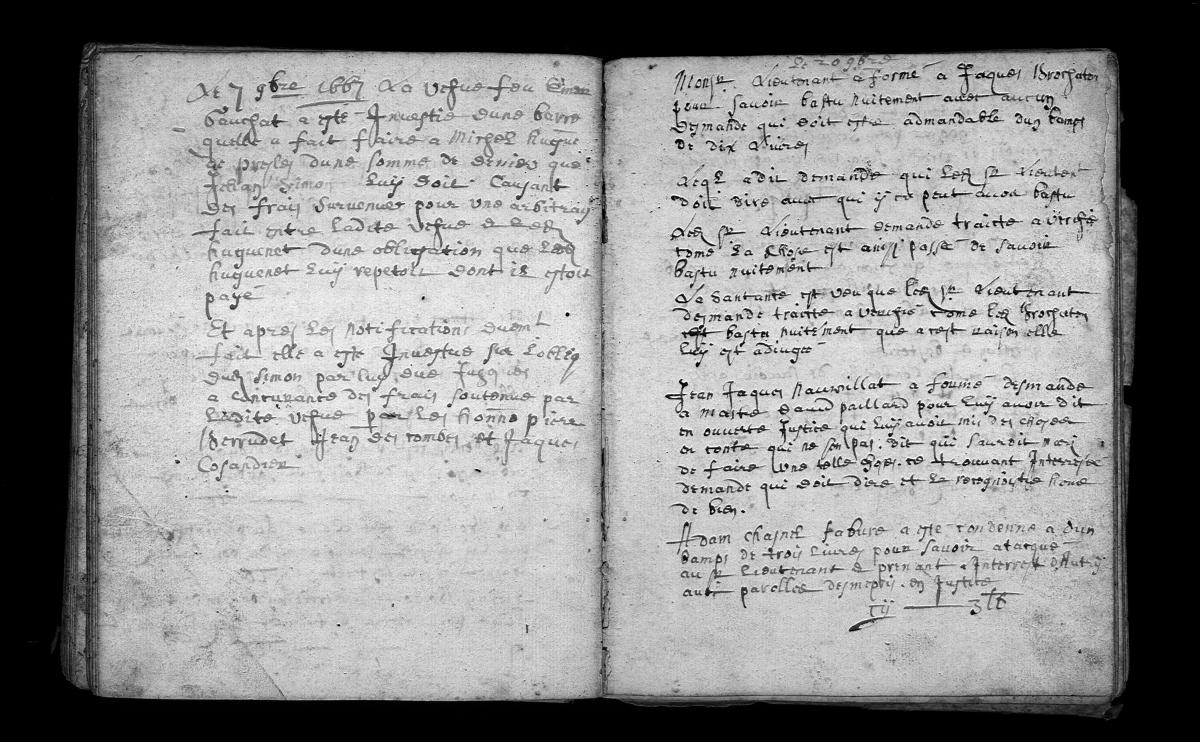 Le 7 9bre 1667 La vefve feu Simon
Gauchat a esté Investie dune barre
quelle a fait faire a Michel hugue
de presles dune somme de deniers que
Jehan Simon Luy doit Causant
des frais survenues pour une arbitrage
fait entre ladite vefve & led
huguenet dune obligation que led
huguenet Luy repetoit dont il estoit
payé
Et apres Les Notifications duemt
fait elle a este Investue sur Loblig
dud Simon par luy due Jusques
a Concurance des frais soutenue par
Ladite vefve par Les honne piere
Perrudet Jean des combes et Jaques
Cosandier
Le 20 9bre
Monsr Lieutenant a formé a Jaques Brochaton
pour savoir bastu nuitement avec aucun
desmande qui doit estre admandable dun bamps
de dix Livres
Leql a dit demande qui Led Sr Lieutent
doit dire avec qui il peut avoir bastu
Led Sr Lieutenant demande traicte a verché
come La Chose est ainsi passé de savoir
bastu nuitement
La Santance est veu que led Sr Lieutenant
desmande traitte a verché come led Brochaton
est bastu nuitement que acest raison elle
Luy est adiugée
Jean Jaques a formé desmande
a maitre david paillard pour Luy avoir dit
en ouverte Justice qui Luy avoit mis des choses
en conte qui ne son pas. dit qui sauroit mari
de faire une telle chose. ce trouvant Interressé
demande qui doit dire et Le recognoitre home
de bien.
Adam chasnel fabvre a este condenne a dun
bamps de trois Livres pour savoir atacqué
au Sr Lieutenant & prenant Interrest dautruy
avec parolles desmepris en Justice
cy 3 lb